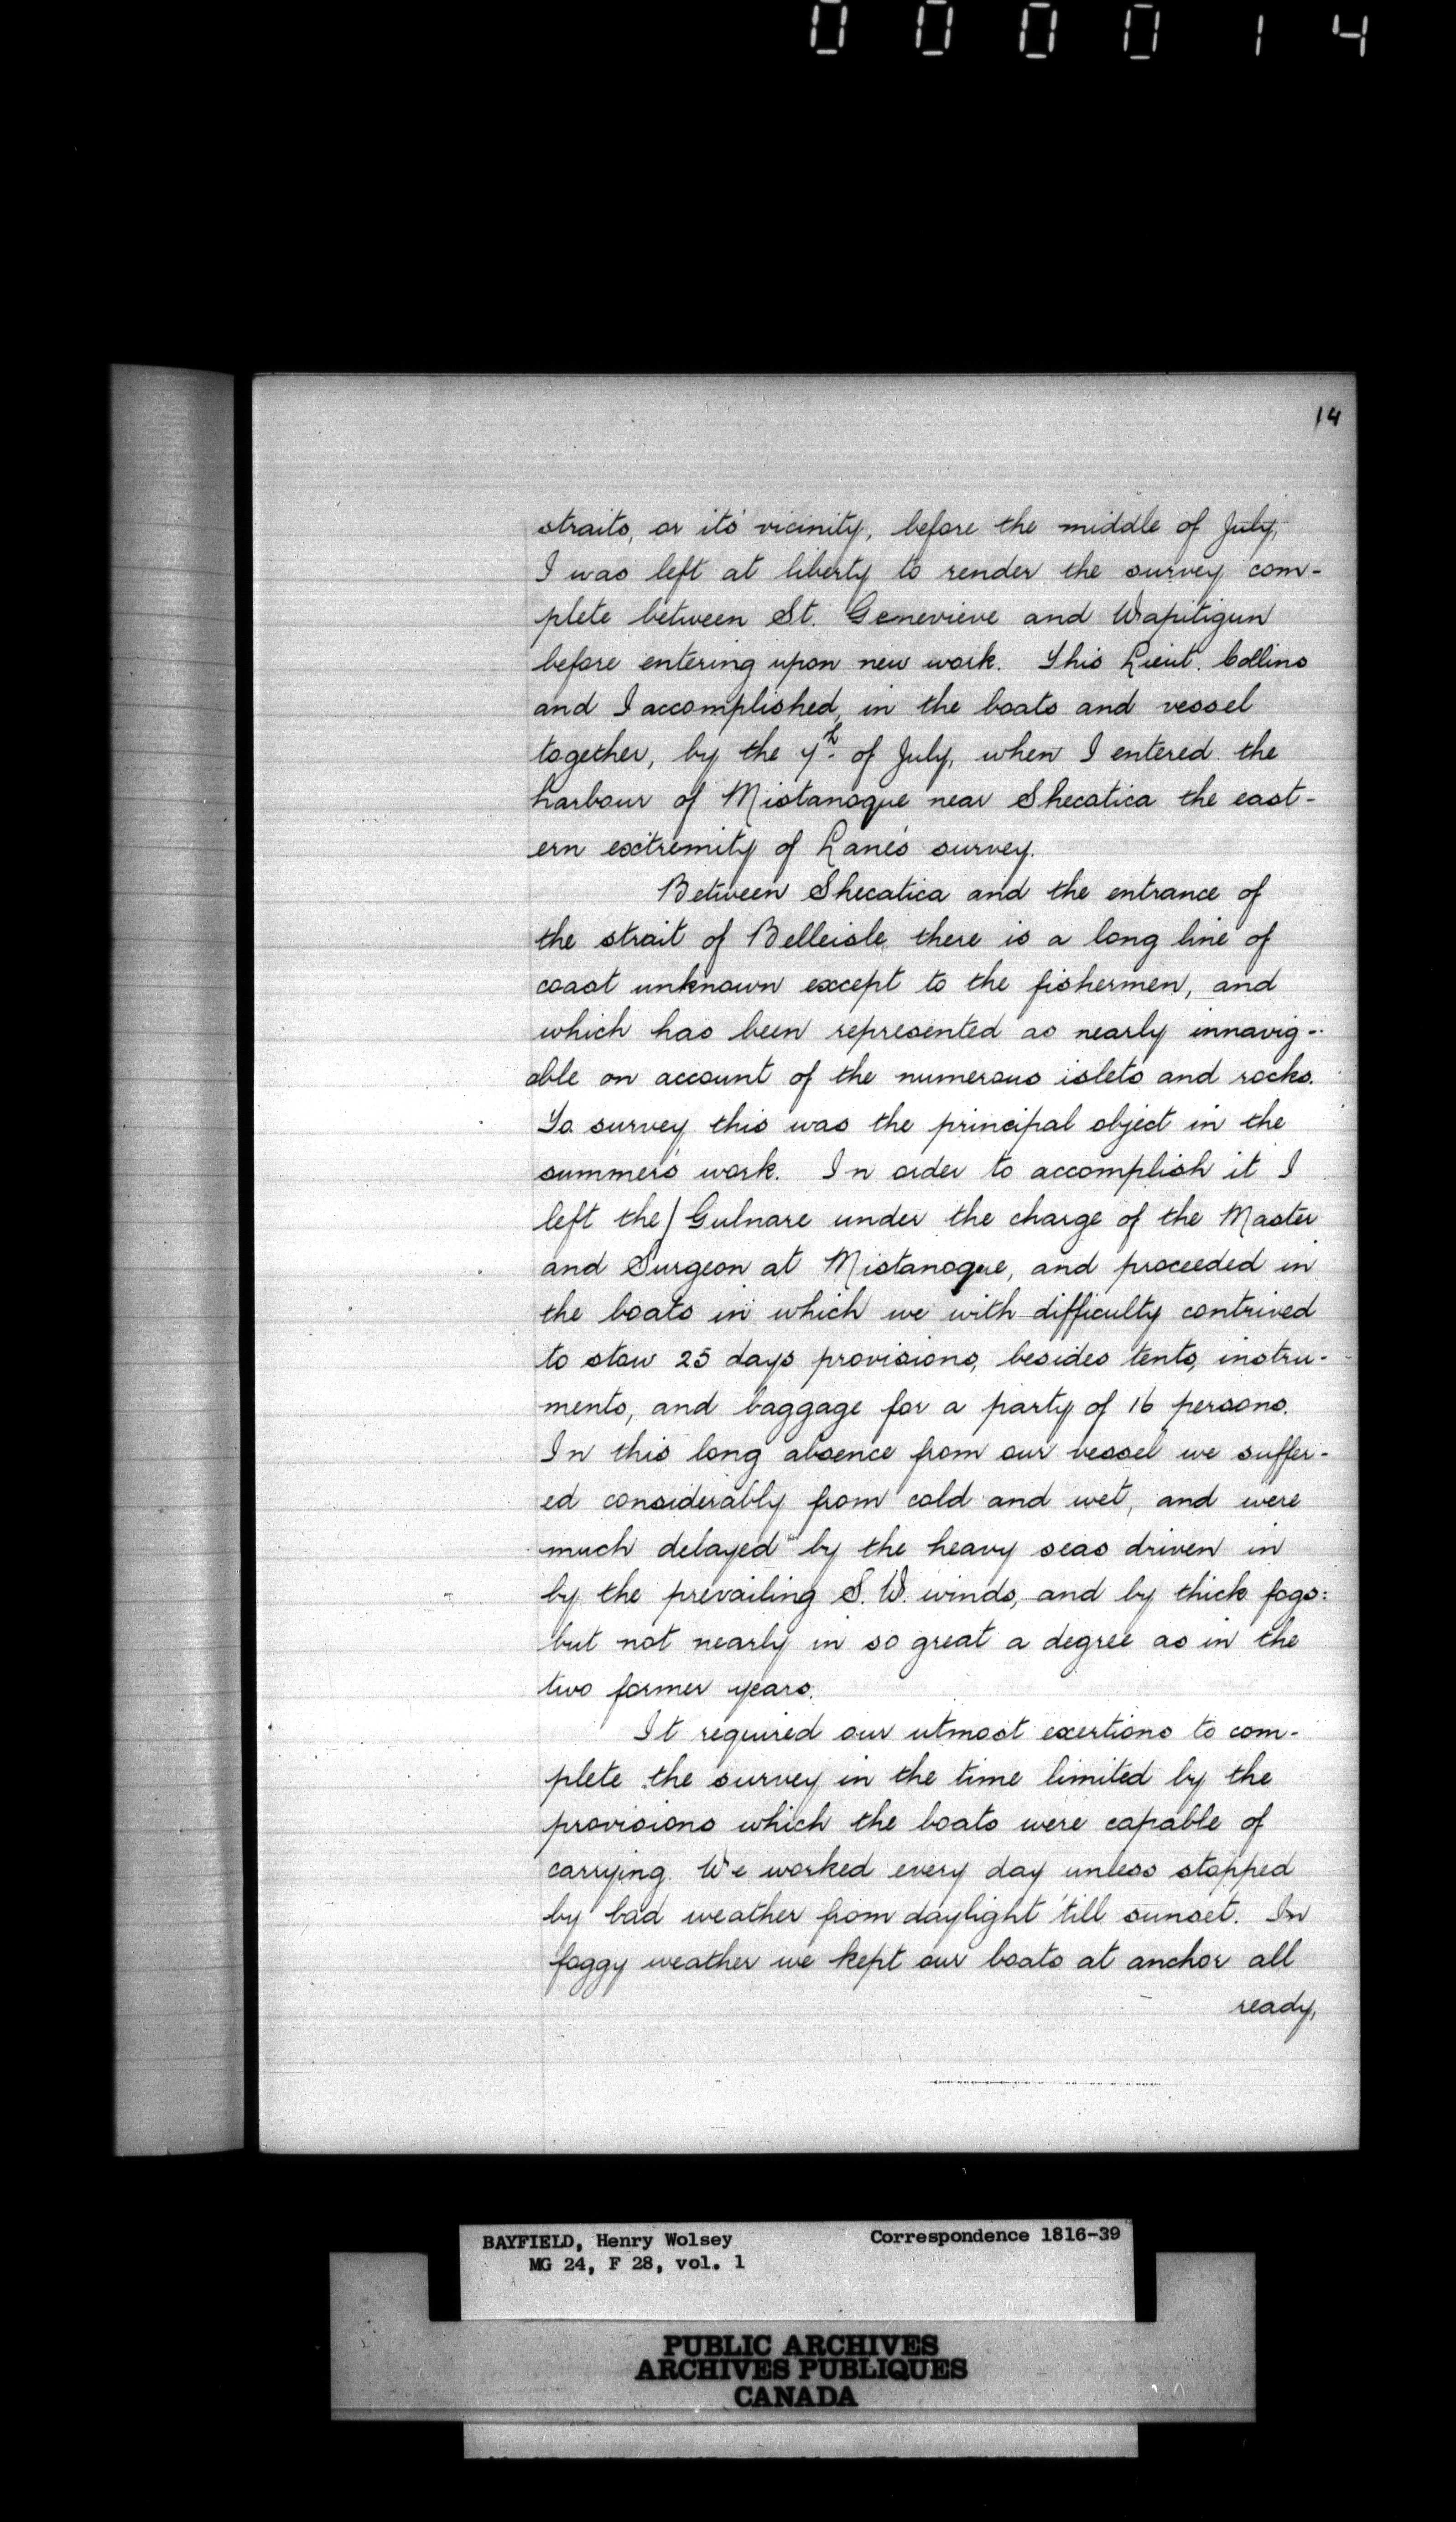 000014
14
straits, or its' vicinity, before the middle of July,
I was left at liberty to render the survey com-
plete between St. Genevieve and Wapitigun
before entering upon new work. This Lieut. Collins
and I accomplished, in the boats and vessel
together, by the 7th of July, when I entered the
harbour of Mistanoque near Shecatica the east-
ern extremity of Lane's survey.
Between Shecatica and the entrance of
the strait of Belleisle there is a long line of
coast unknown except to the fishermen, and
which has been represented as nearly innavig-
able on account of the numerous islets and rocks.
To survey this was the principal object in the
summer's work. In order to accomplish it I
left the/ Gulnare under the charge of the Master
and Surgeon at Mistanoque, and proceeded in
the boats in which we with difficulty contrived
to stow 25 days provisions, besides tents, instru-
ments, and baggage for a party of 16 persons.
In this long absence from our vessel we suffer-
ed considerably from cold and wet, and were
much delayed by the heavy seas driven in
by the prevailing S. W. winds, and by thick fogs:
but not nearly in so great a degree as in the
two former years.
It required our utmost exertions to com-
plete the survey in the time limited by the
provisions which the boats were capable of
carrying. We worked every day unless stopped
by bad weather from daylight 'till sunset. In
foggy weather we kept our boats at anchor all
ready,
BAYFIELD, Henry Wolsey Correspondence 1816-39
MG 24, F 28, vol. 1
PUBLIC ARCHIVES
ARCHIVES PUBLIQUES
CANADA